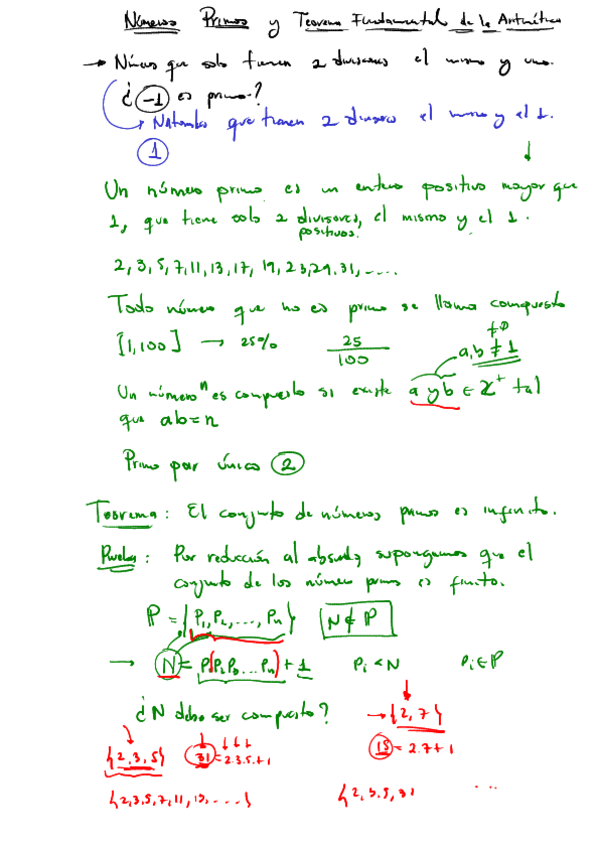 Números Primos y Teorema Fundamental de la Aritmética
→ Números que solo tienen 2 divisores el mismo y uno.
¿ -1 es primo?
→ Naturales que tienen 2 divisores el mismo y el 1.
1
Un número primo es un entero positivo mayor que
1, que tiene solo 2 divisores, el mismo y el 1.
positivos.
2, 3, 5, 7, 11, 13, 17, 19, 23, 29, 31, ....
Todo número que no es primo se llama compuesto
≠0
[1,100] → 25% 25/100 a,b ≠ 1
Un número n es compuesto si existe a y b ∈ Z+ tal
que ab=n
Primo par único 2
Teorema: El conjunto de números primos es infinito.
Prueba: Por reducción al absurdo, supongamos que el
conjunto de los número primos es finito.
P = {P1, P2, ..., Pn} N ∉ P
→ N = P1P2P3...Pn + 1 Pi < N Pi ∈ P
¿N debe ser compuesto? → {2, 7}
{2,3,5} 31 = 2.3.5+1 15 = 2.7+1
{2,3,5,7,11,13,....} {2,3,5,31 ...